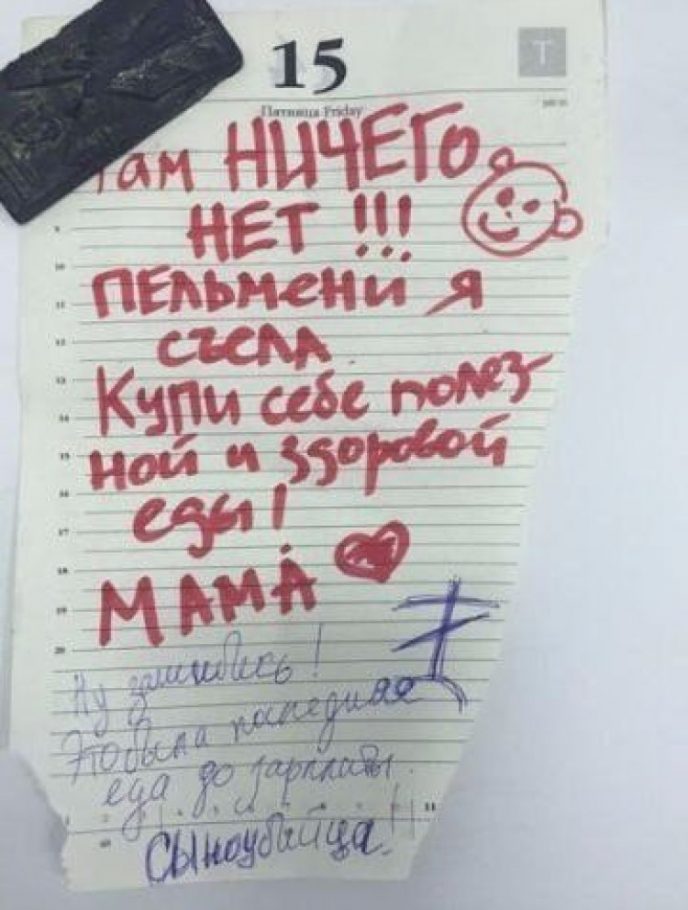 15
T
Пятница Friday
Там НИЧЕГО
НЕТ !!!
ПЕЛЬМЕНИ Я
СЪЕЛА
Купи себе полез-
ной и здоровой
еды!
МАМА
Ну зашибись!
Это была последняя
еда до зарплаты.
Сыноубийца!
9
10
11
12
13
14
15
16
17
18
19
20
11